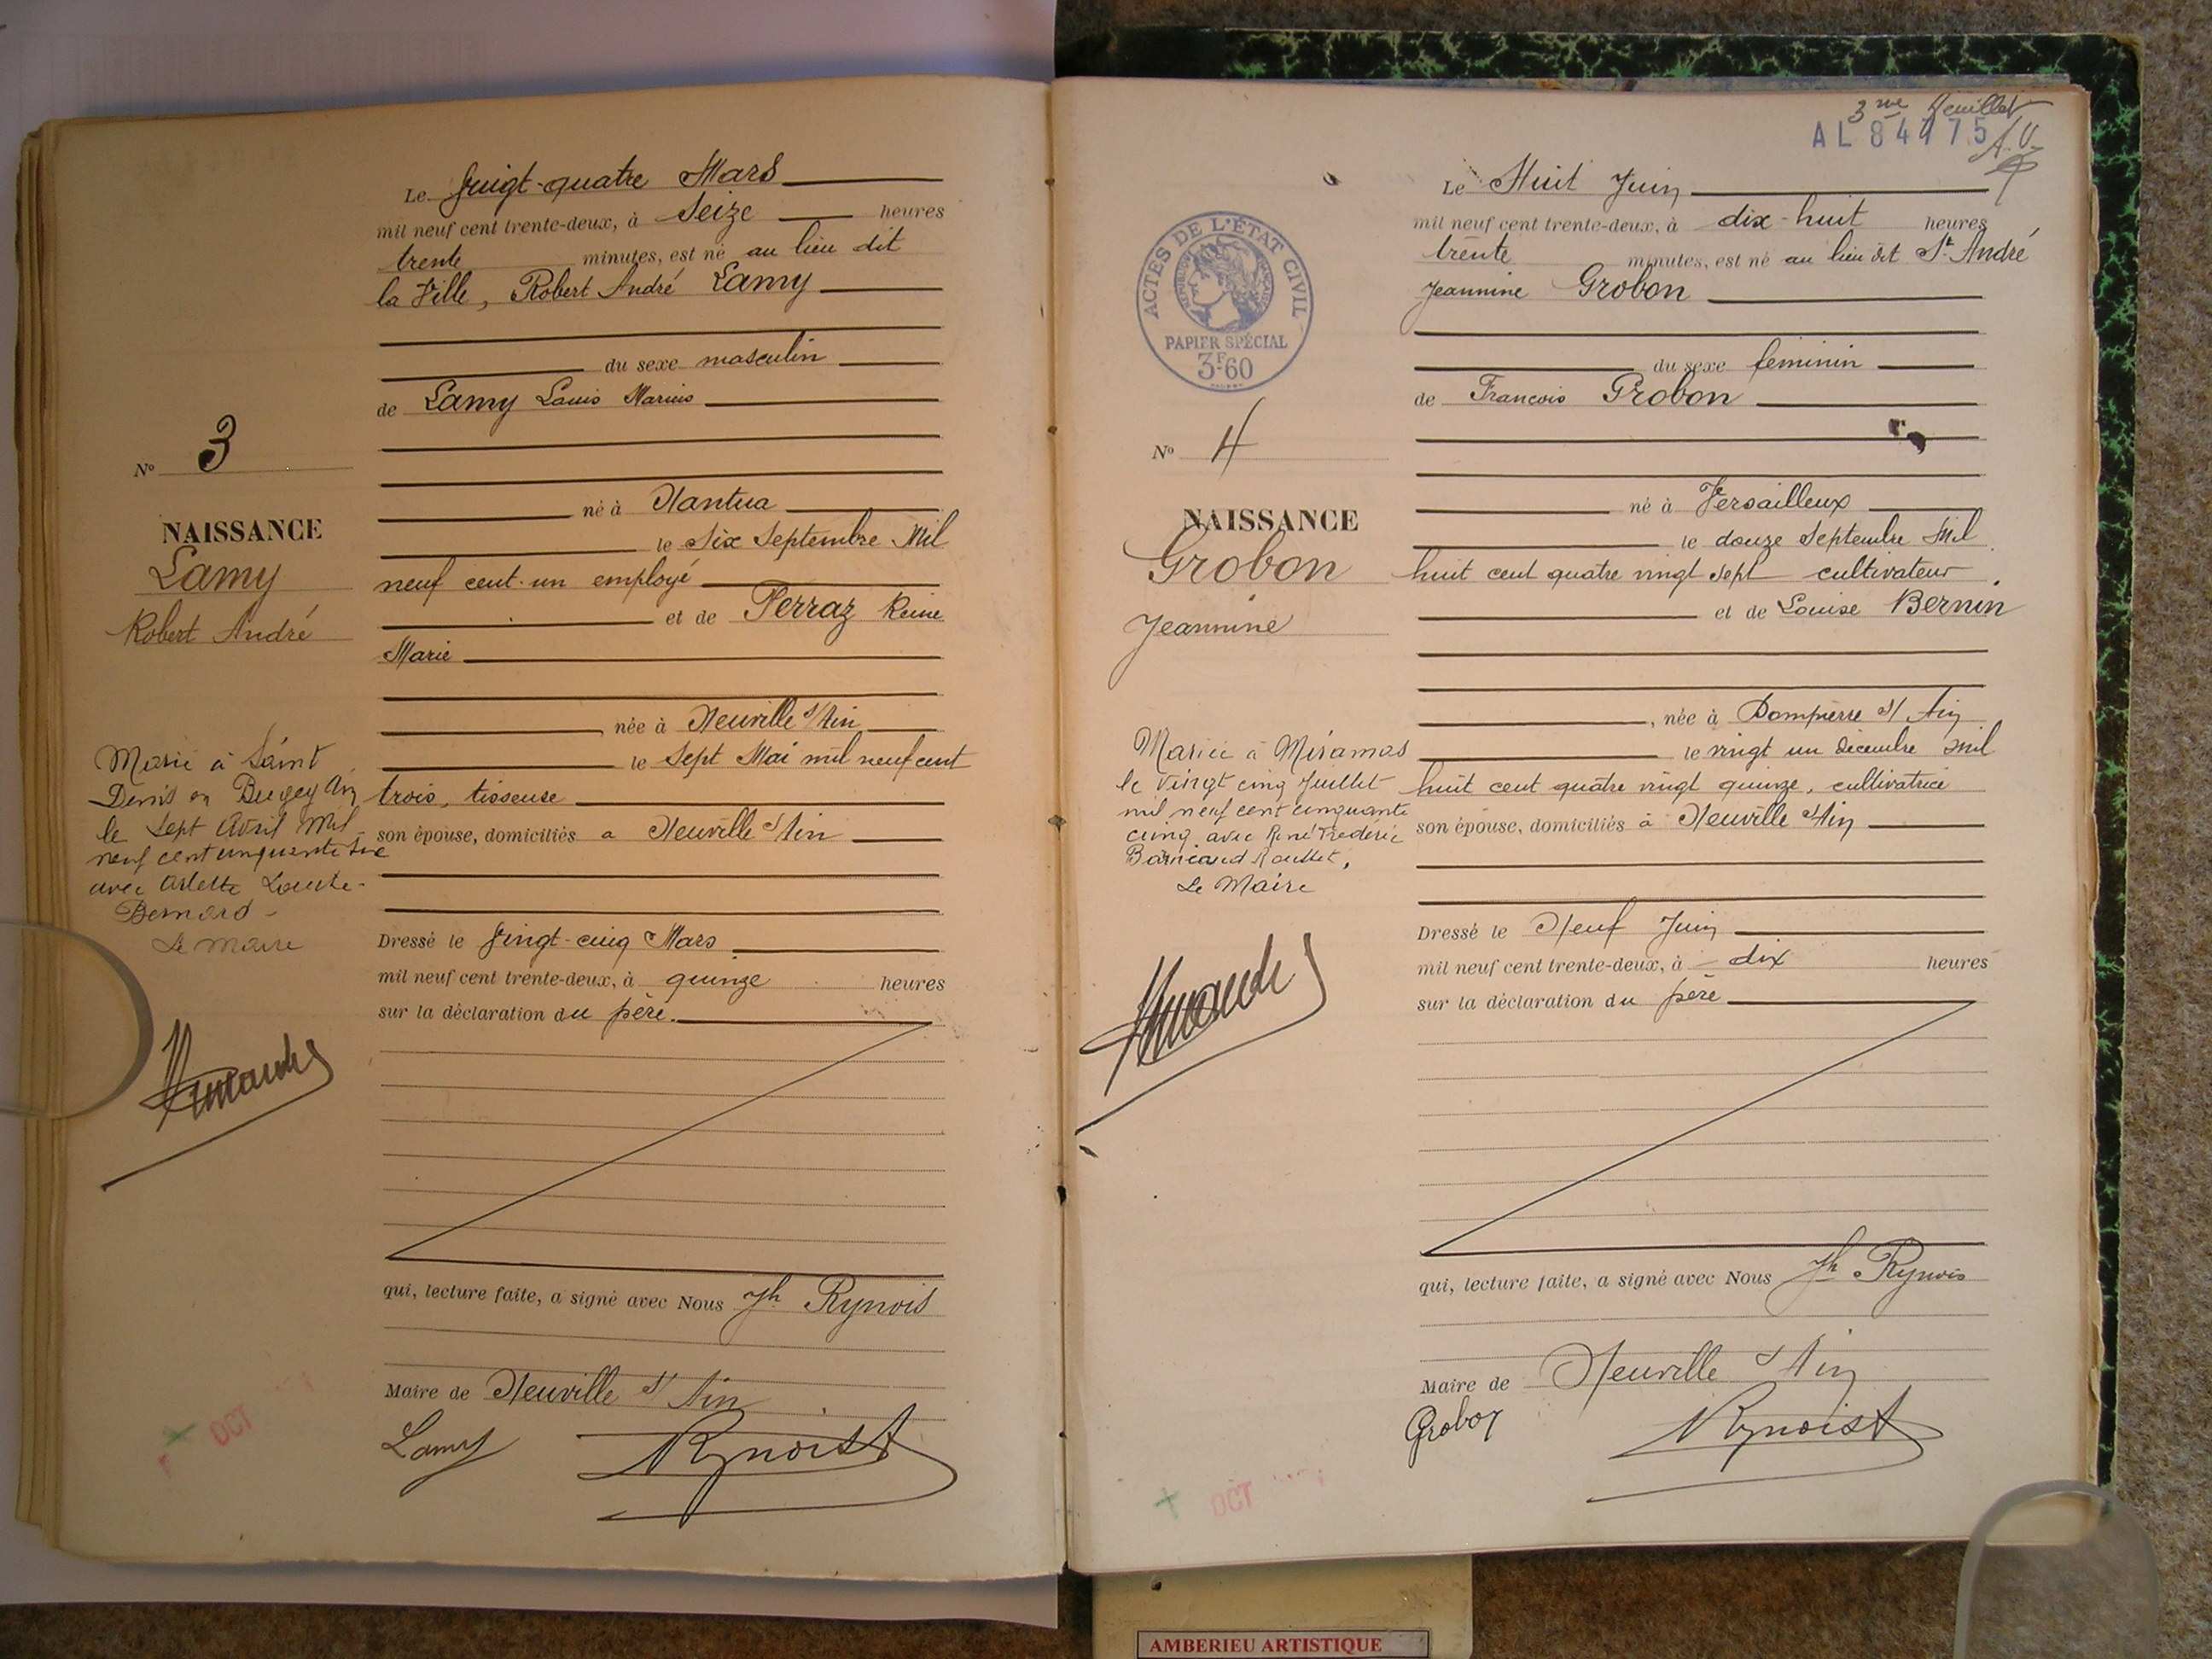 Le Vingt-quatre Mars
mil neuf cent trente-deux, à Seize heures
trente minutes, est né au lieu dit
la Ville, Robert André Lamy
du sexe masculin
de Lamy Louis Marius
né à Nantua
le Six Septembre Mil
neuf cent-un employé
et de Perraz Reine
Marie
née à Neuville s/Ain
le Sept Mai mil neuf cent
trois, tisseuse
son épouse, domiciliés a Neuville s/Ain
Dressé le Vingt-cinq Mars
mil neuf cent trente-deux, à quinze heures
sur la déclaration du père.
qui, lecture faite, a signé avec Nous Jh Rynois
Maire de Neuville s/ Ain
Lamy Rynoist
No 3
NAISSANCE
Lamy
Robert André
Marié à Saint
Denis en Bugey Ain
le Sept Avril Mil
neuf cent cinquante six
avec Arlette Louise
Bernard -
Le Maire
OCT
3me feuillet
AL 84175
A.V.
ACTES DE L'ÉTAT CIVIL
RÉPUBLIQUE FRANÇAISE
PAPIER SPÉCIAL
3F60
Le Huit Juin
mil neuf cent trente-deux, à dix-huit heures
trente minutes, est né au lieu dit St André
Jeannine Grobon
du sexe feminin
de François Grobon
né à Versailleux
le douze Septembre Mil
huit cent quatre vingt sept cultivateur
et de Louise Bernin
, née à Dompierre s/ Ain
le vingt un décembre mil
huit cent quatre vingt quinze, cultivatrice
son épouse, domiciliés à Neuville s/Ain
Dressé le Neuf Juin
mil neuf cent trente-deux, à dix heures
sur la déclaration du père
qui, lecture faite, a signé avec Nous Jh Rynois
Maire de Neuville s/ Ain
Grobon Rynoist
No 4
NAISSANCE
Grobon
Jeannine
Mariée à Miramas
le Vingt cinq Juillet
mil neuf cent cinquante
cinq avec René Frédéric
Barnéaud Rousset,
Le Maire
OCT
AMBERIEU ARTISTIQUE